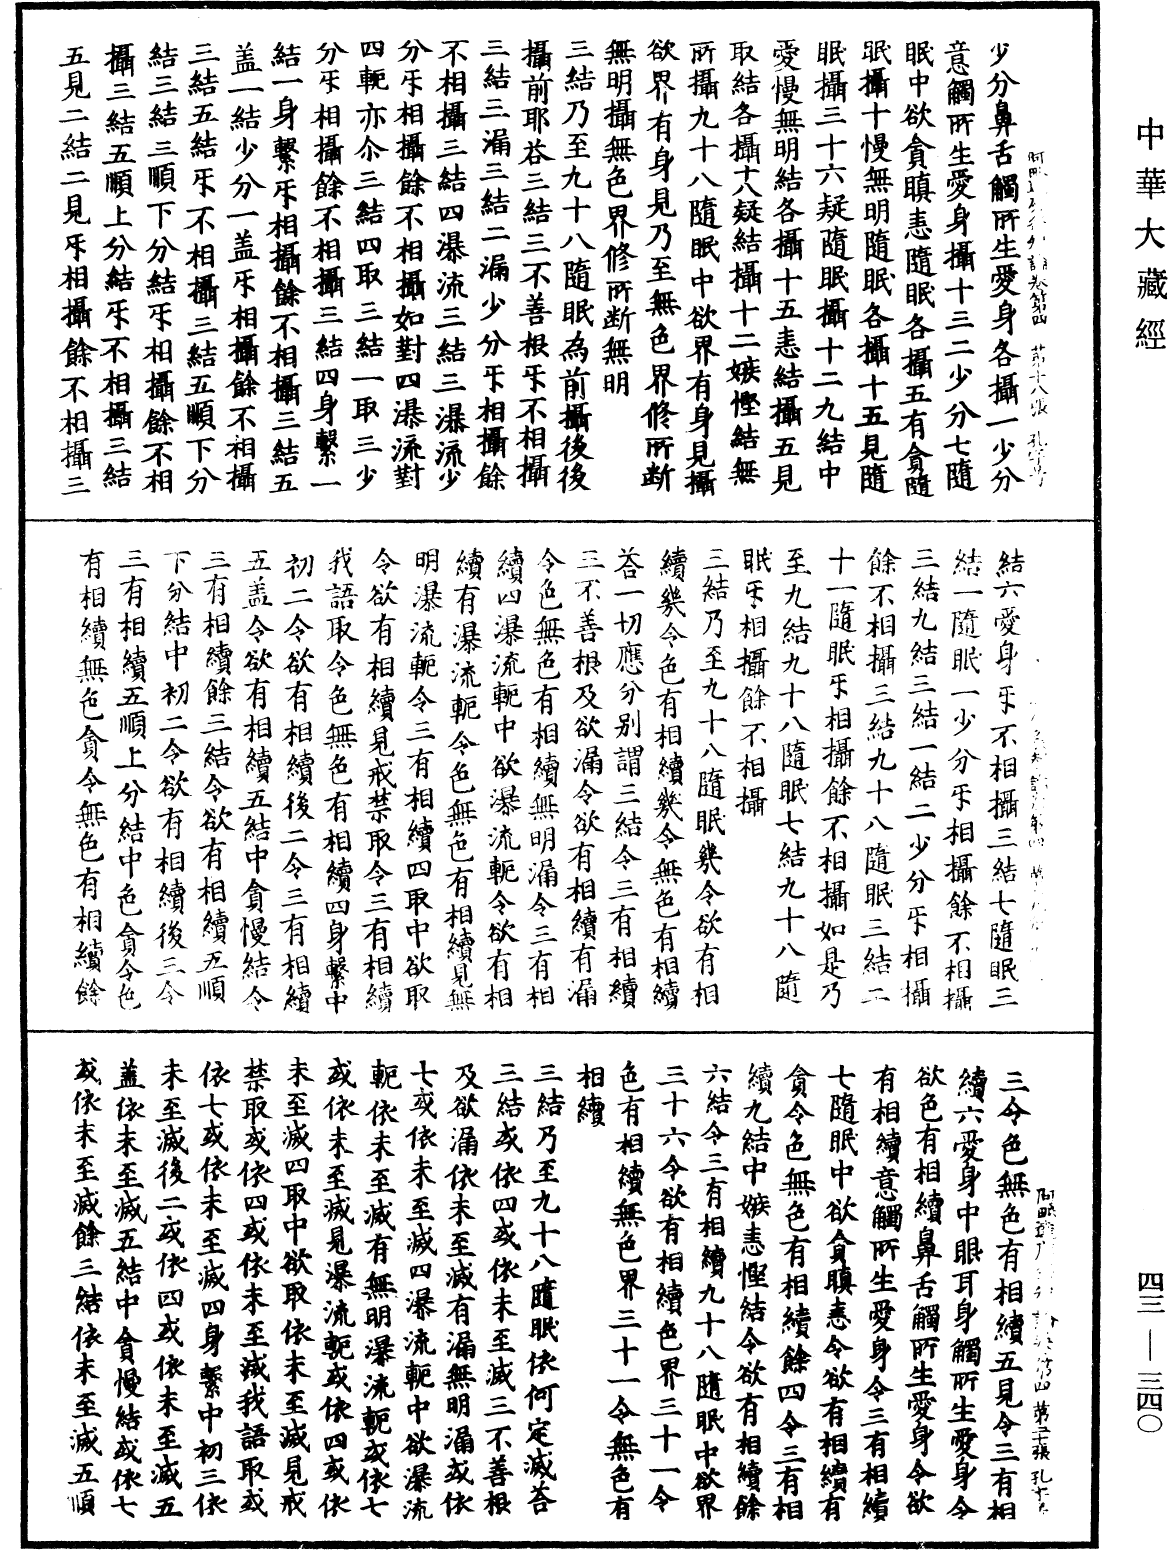 中華大藏經
少分鼻舌觸所生愛身各攝一少分
意觸所生愛身攝十三二少分七隨
眠中欲貪瞋恚隨眠各攝五有貪隨
眠攝十慢無明隨眠各攝十五見隨
眠攝三十六疑隨眠攝十二九結中
愛慢無明結各攝十五恚結攝五見
取結各攝十八疑結攝十二嫉慳結無
所攝九十八隨眠中欲界有身見攝
欲界有身見乃至無色界修所斷
無明攝無色界修所斷無明
三結乃至九十八隨眠為前攝後後
攝前耶荅三結三不善根㸦不相攝
三結三漏三結二漏少分㸦相攝餘
不相攝三結四瀑流三結三瀑流少
分㸦相攝餘不相攝如對四瀑流對
四軛亦尒三結四取三結一取三少
分㸦相攝餘不相攝三結四身繫一
結一身繫㸦相攝餘不相攝三結五
盖一結少分一盖㸦相攝餘不相攝
三結五結㸦不相攝三結五順下分
結三結三順下分結㸦相攝餘不相
攝三結五順上分結㸦不相攝三結
五見二結二見㸦相攝餘不相攝三
結六愛身㸦不相攝三結七隨眠三
結一隨眠一少分㸦相攝餘不相攝
三結九結三結一結二少分㸦相攝
餘不相攝三結九十八隨眠三結二
十一隨眠㸦相攝餘不相攝如是乃
至九結九十八隨眠七結九十八隨
眠㸦相攝餘不相攝
三結乃至九十八隨眠幾令欲有相
續幾令色有相續幾令無色有相續
荅一切應分別謂三結令三有相續
三不善根及欲漏令欲有相續有漏
令色無色有相續無明漏令三有相
續四瀑流軛中欲瀑流軛令欲有相
續有瀑流軛令色無色有相續見無
明瀑流軛令三有相續四取中欲取
令欲有相續見戒禁取令三有相續
我語取令色無色有相續四身繫中
初二令欲有相續後二令三有相續
五盖令欲有相續五結中貪慢結令
三有相續餘三結令欲有相續五順
下分結中初二令欲有相續後三令
三有相續五順上分結中色貪令色
有相續無色貪令無色有相續餘
三令色無色有相續五見令三有相
續六愛身中眼耳身觸所生愛身令
欲色有相續鼻舌觸所生愛身令欲
有相續意觸所生愛身令三有相續
七隨眠中欲貪瞋恚令欲有相續有
貪令色無色有相續餘四令三有相
續九結中嫉恚慳結令欲有相續餘
六結令三有相續九十八隨眠中欲界
三十六令欲有相續色界三十一令
色有相續無色界三十一令無色有
相續
三結乃至九十八隨眠依何定滅荅
三結或依四或依未至滅三不善根
及欲漏依未至滅有漏無明漏或依
七或依未至滅四瀑流軛中欲瀑流
軛依未至滅有無明瀑流軛或依七
或依未至滅見瀑流軛或依四或依
未至滅四取中欲取依未至滅見戒
禁取或依四或依未至滅我語取或
依七或依未至滅四身繫中初二依
未至滅後二或依四或依未至滅五
盖依未至滅五結中貪慢結或依七
或依未至滅餘三結依未至滅五順
四三—三四〇